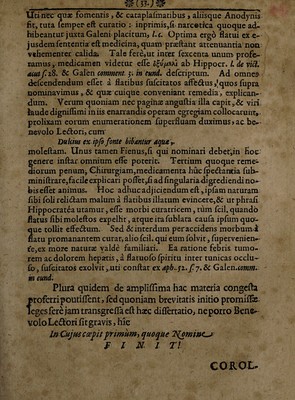 (33.)
Uti nec quæ fomentis, & cataplasmatibus, aliisque Anodynis
fit, tuta semper est : curatio; inprimis, si narcotica quoque ad-
hibeantur juxta Galeni placitum, l.c. Optima ergò flatui ex e-
jusdem sententia est medicina, quam præstant attenuantia non
vehementer calida. Tale ferè, ut inter sexcenta unum profe-
ramus, medicamen videtur esse ab Hippocr. l. de vict.
acut f. 28. & Galen comment 3. in eund. descriptum. Ad omnes
descendendum esset à flatibus suscitatos affectus, quos supra
nominavimus, & quæ cuique conveniant remedia, explican-
dum. Verum quoniam nec paginæ angustia illa capit, & viri
laude dignissimi in iis enarrandis operam egregiam collocarunt,
prolixam eorum enumerationem superfluam duximus, ac be-
nevolo Lectori, cum
Dulcius ex ipso fonte bibantur aquæ,
molestam. Unus tamen Fienus, si qui nominari debet, in hoc
genere instar omnium esse poterit. Tertium quoque reme-
diorum penum, Chirurgiam, medicamenta huc spectantia sub-
ministrare, facile explicari posset, si ad singularia digrediendi no-
bis esset animus. Hoc adhuc adjiciendum est, ipsam naturam
sibi soli relictam malum à flatibus illatum evincere, & ut phrasi
Hippocratêa utamur, esse morbi curatricem, tùm scil, quando
flatus sibi molestos expellit, atque ita sublata causa ipsum quo-
que tollit effectum. Sed & interdum per accidens morbum à
flatu promanantem curat, alio scil. qui eum solvit, supervenien-
te, ex more naturæ valdè familiari. Ea ratione febris tumo-
rem ac dolorem hepatis, à flatuoso spiritu inter tunicas occlu-
so, suscitatos exolvit, uti constat ex aph. 52. s. 7. & Galen. comm.
in eund.
Plura quidem de amplissima hac materia congesta
proferri potuissent, sed quoniam brevitatis initio promissæ
leges ferè jam transgressa est hæc dissertatio, ne porro Bene
volo Lectori sit gravis, hîc
In Cujus cœpit primùm, quoque Nomine
FINIT!
COROL-